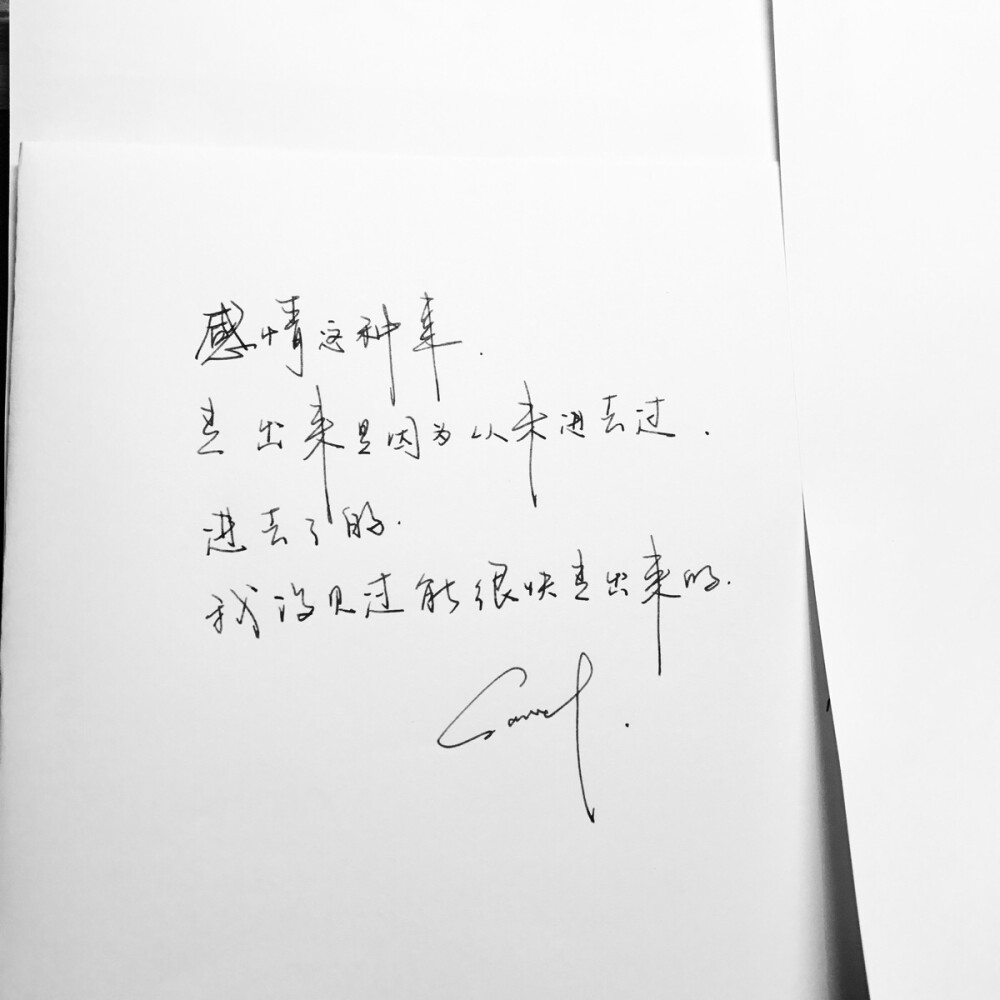 感情这种事.
走出来是因为从未进去过.
进去了的.
我没见过能很快走出来的.